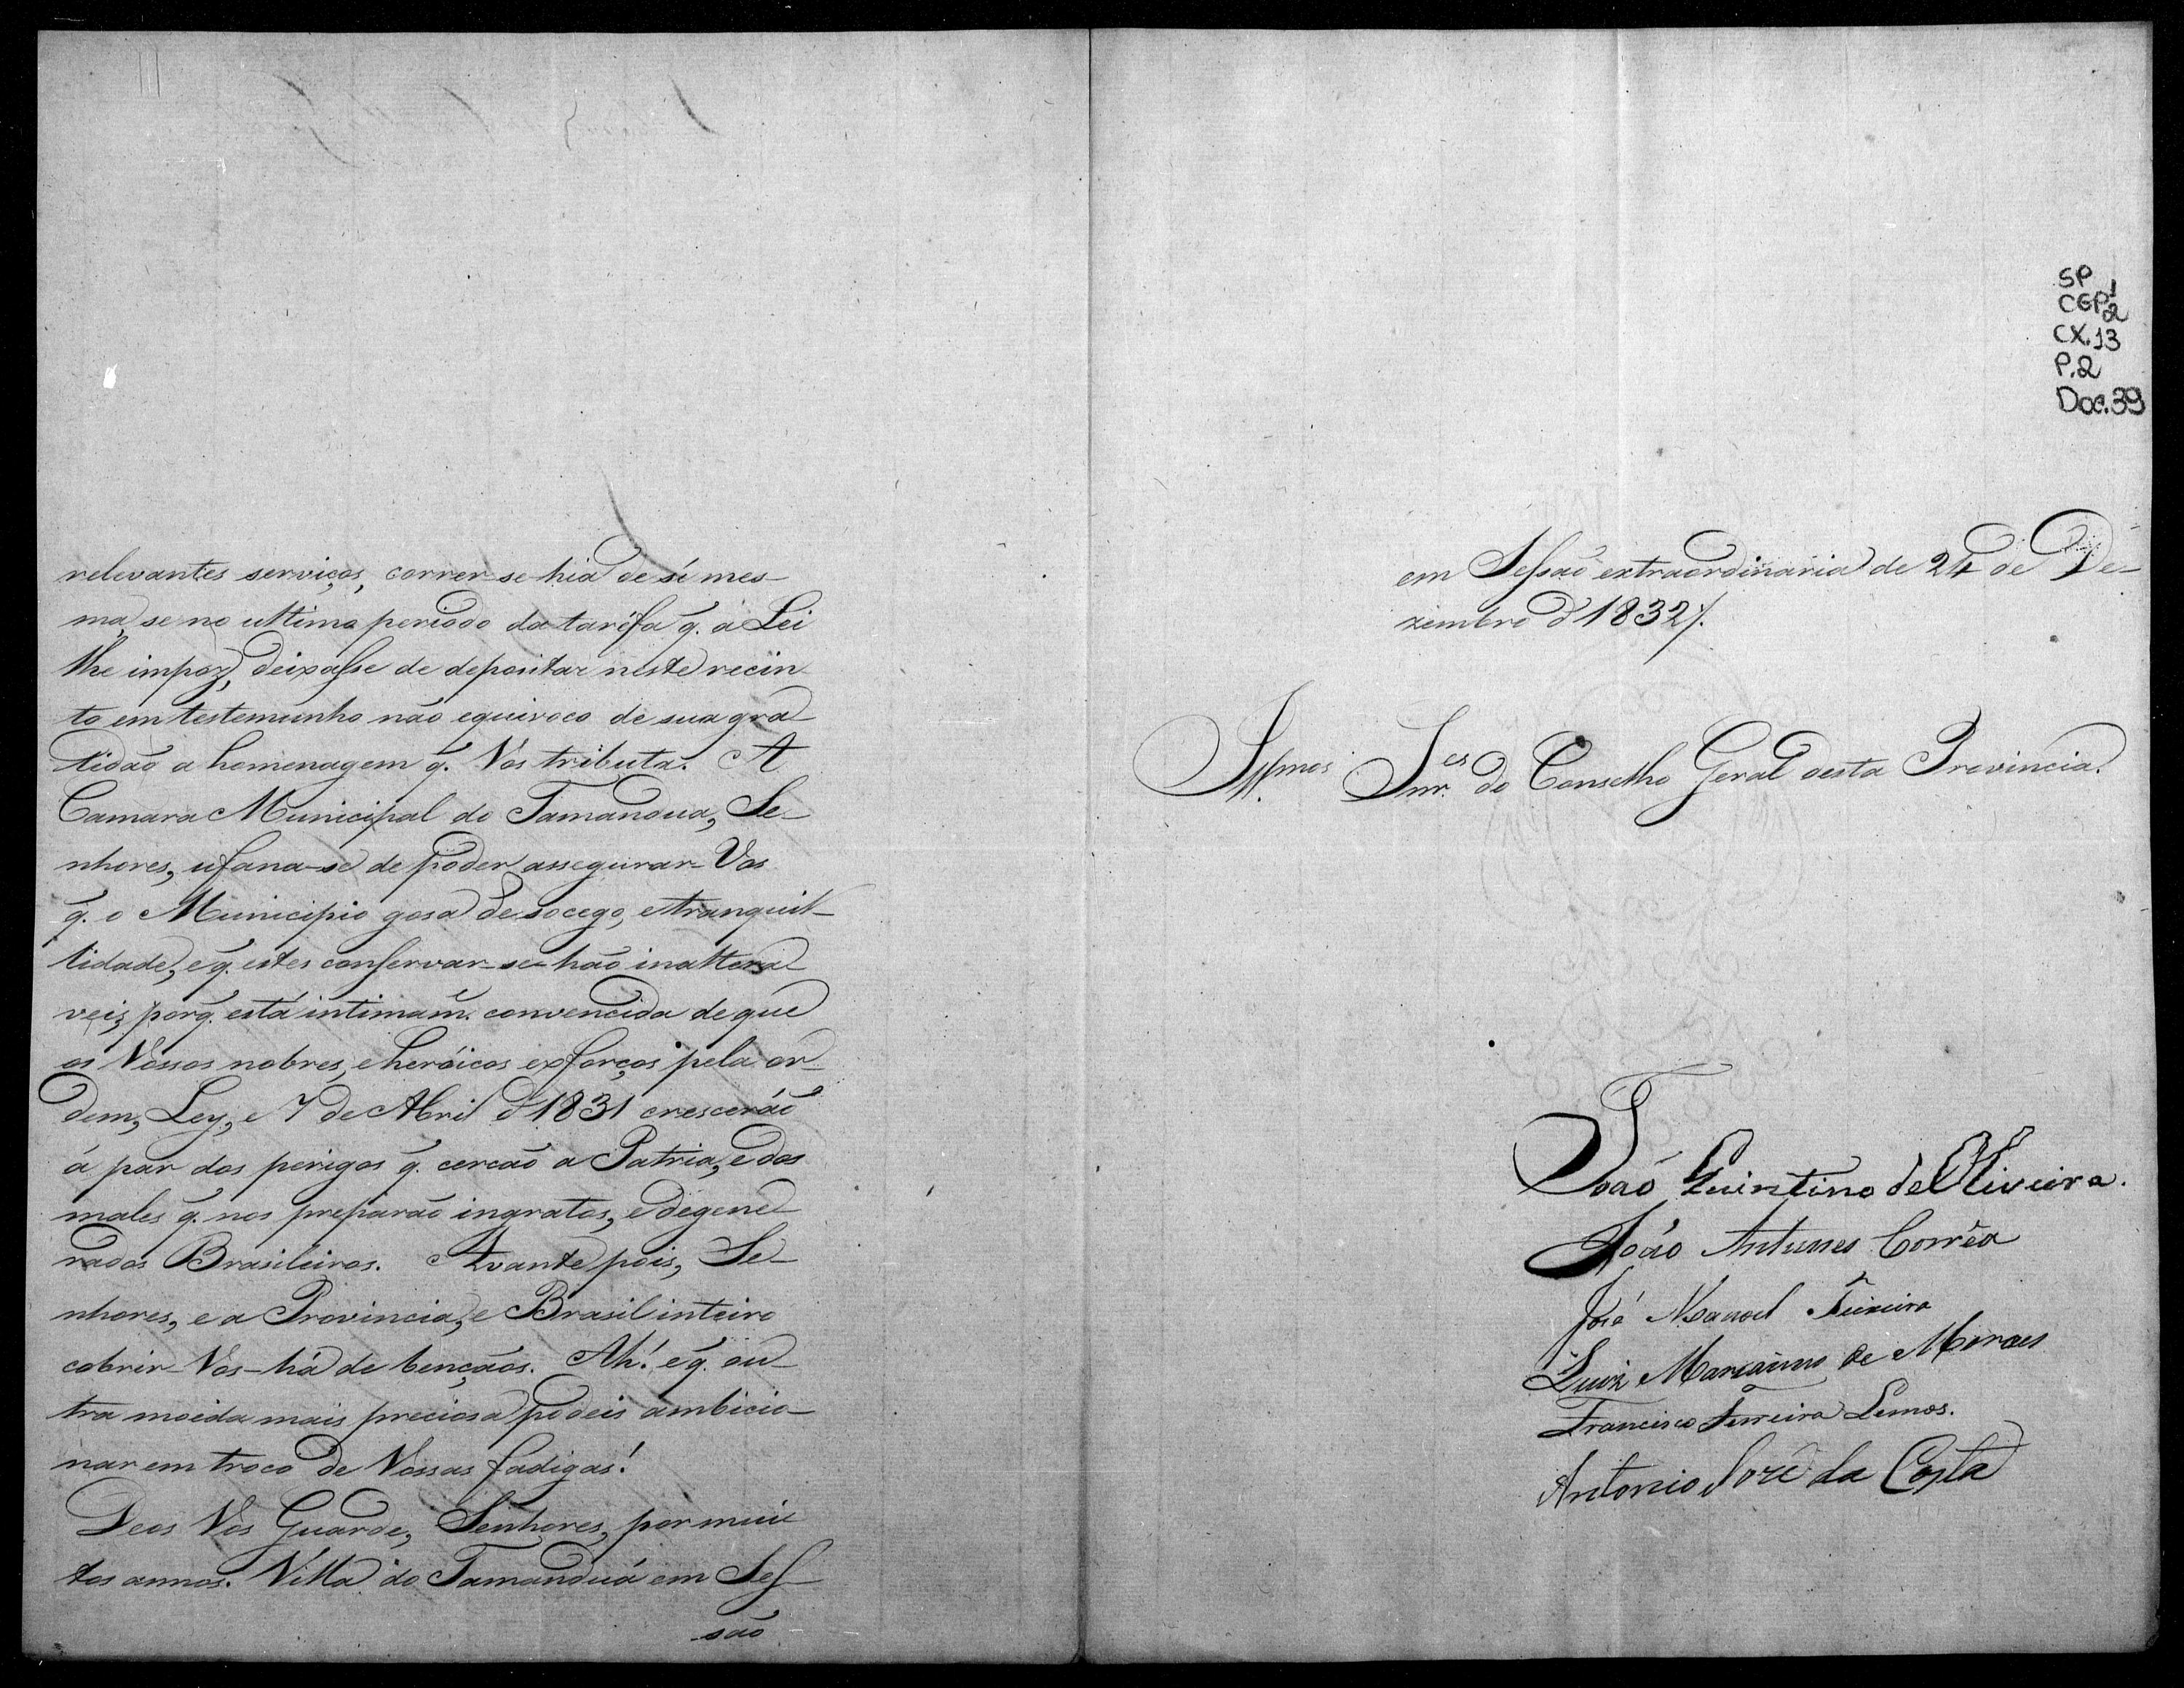 relevantes serviços, correr-se-hia de sí mes-
ma, se no ultimo periodo da taréfa q̃. a Lei
lhe impoz, deixasse de depositar neste recin-
to em testemunho não equivoco de sua gra-
tidão a homenagem q̃. Vos tributa. A
Camara Municipal do Tamandua, Se-
nhores, ufana-se de poder assegurar-Vos
q̃. o Municipio gosa de socego, e tranquil-
lidade, e q̃. estes conservar-se-hão inaltera-
veis, porq̃. está intimam.e convencida de que
os Vossos nobres, e heróicos exforços pela or-
dem, Ley, e 7 de Abril d'1831 cresceráõ
á par dos perigos q̃. cercão a Patria, e dos
males q̃. nos preparão ingratos, e degene-
rados Brasileiros. Avante pois, Se-
nhores, e a Provincia, e Brasil inteiro
cobrir-Vos-há de bençãos. Ah! e q̃. ou-
tra moeda mais preciosa podeis ambicio-
nar em troco de Vossas fadigas!
Deos Vos Guarde, Senhores, por mui-
tos annos. Villa do Tamanduá em Ses-
são
SP
CGP 1/2
CX.13
P.2
Doc.39
em Sessão extraordinaria de 24 de De-
zembro d'1832/.
Illmos Snr.es do Conselho Geral desta Provincia.
João Quintino de Oliveira.
João Antunes Corrêa
José Manoel Teixeira
Luiz Marianno de Moraes
Francisco Ferreira Lemos.
Antonio José da Costa